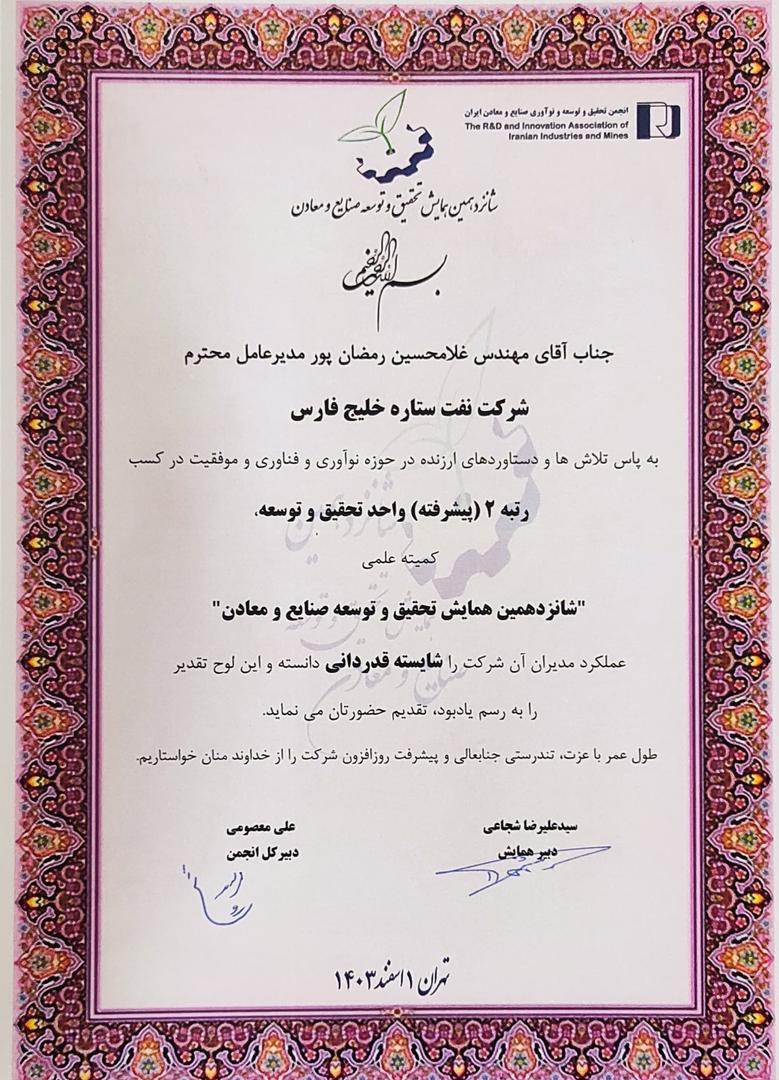 انجمن تحقیق و توسعه و نوآوری صنایع و معادن ایران
The R&D and Innovation Association of
Iranian Industries and Mines
شانزدهمین همایش تحقیق و توسعه صنایع و معادن
بسم الله الرحمن الرحیم
جناب آقای مهندس غلامحسین رمضان پور مدیرعامل محترم
شرکت نفت ستاره خلیج فارس
به پاس تلاش ها و دستاوردهای ارزنده در حوزه نوآوری و فناوری و موفقیت در کسب
رتبه ۲ (پیشرفته) واحد تحقیق و توسعه،
کمیته علمی
"شانزدهمین همایش تحقیق و توسعه صنایع و معادن"
عملکرد مدیران آن شرکت را شایسته قدردانی دانسته و این لوح تقدیر
را به رسم یادبود، تقدیم حضورتان می نماید.
طول عمر با عزت، تندرستی جنابعالی و پیشرفت روزافزون شرکت را از خداوند منان خواستاریم.
سیدعلیرضا شجاعی
دبیر همایش
علی معصومی
دبیرکل انجمن
تهران ۱ اسفند ۱۴۰۳